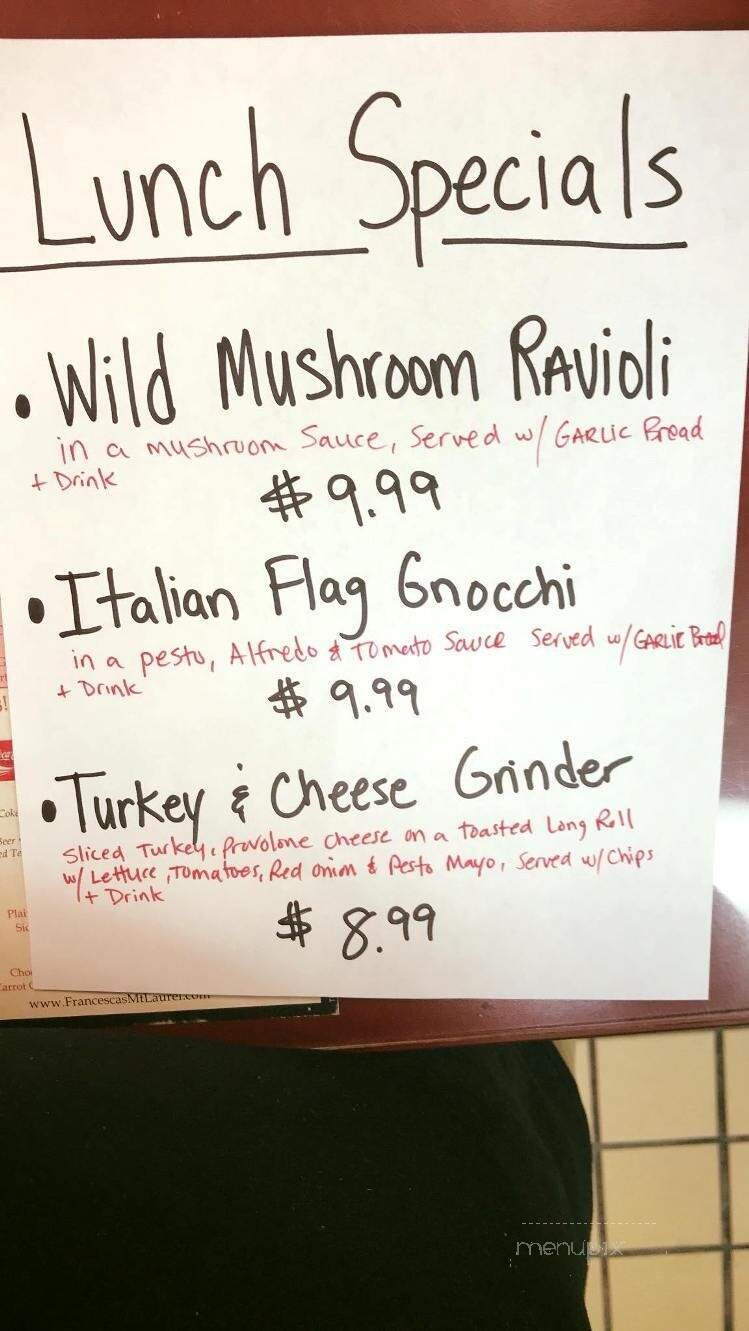 Lunch Specials
• Wild Mushroom Ravioli
in a mushroom Sauce, Served w/ GARLIC Bread
+ Drink
$ 9.99
• Italian Flag Gnocchi
in a pesto, Alfredo & Tomato Sauce Served w/ GARLIC Bread
+ Drink
$ 9.99
• Turkey & Cheese Grinder
Sliced Turkey, Provolone cheese on a toasted Long Roll
w/ Lettuce, Tomatoes, Red onion & Pesto Mayo, Served w/ Chips
+ Drink
$ 8.99
Coke
Beer
Plai
Sic
Cho
arrot C
www.FrancescasMtLaurel.com
menupix